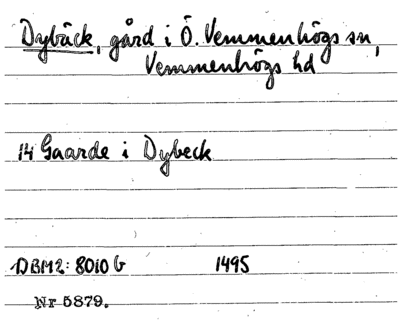 Dybäck, gård i Ö. Vemmenhögs sn,
Vemmenhögs hd
14 Gaarde i Dybeck
DBM2: 8010 G 1495
Nr 5879.